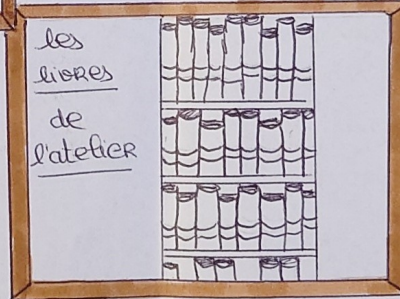 les
livres
de
l'atelier